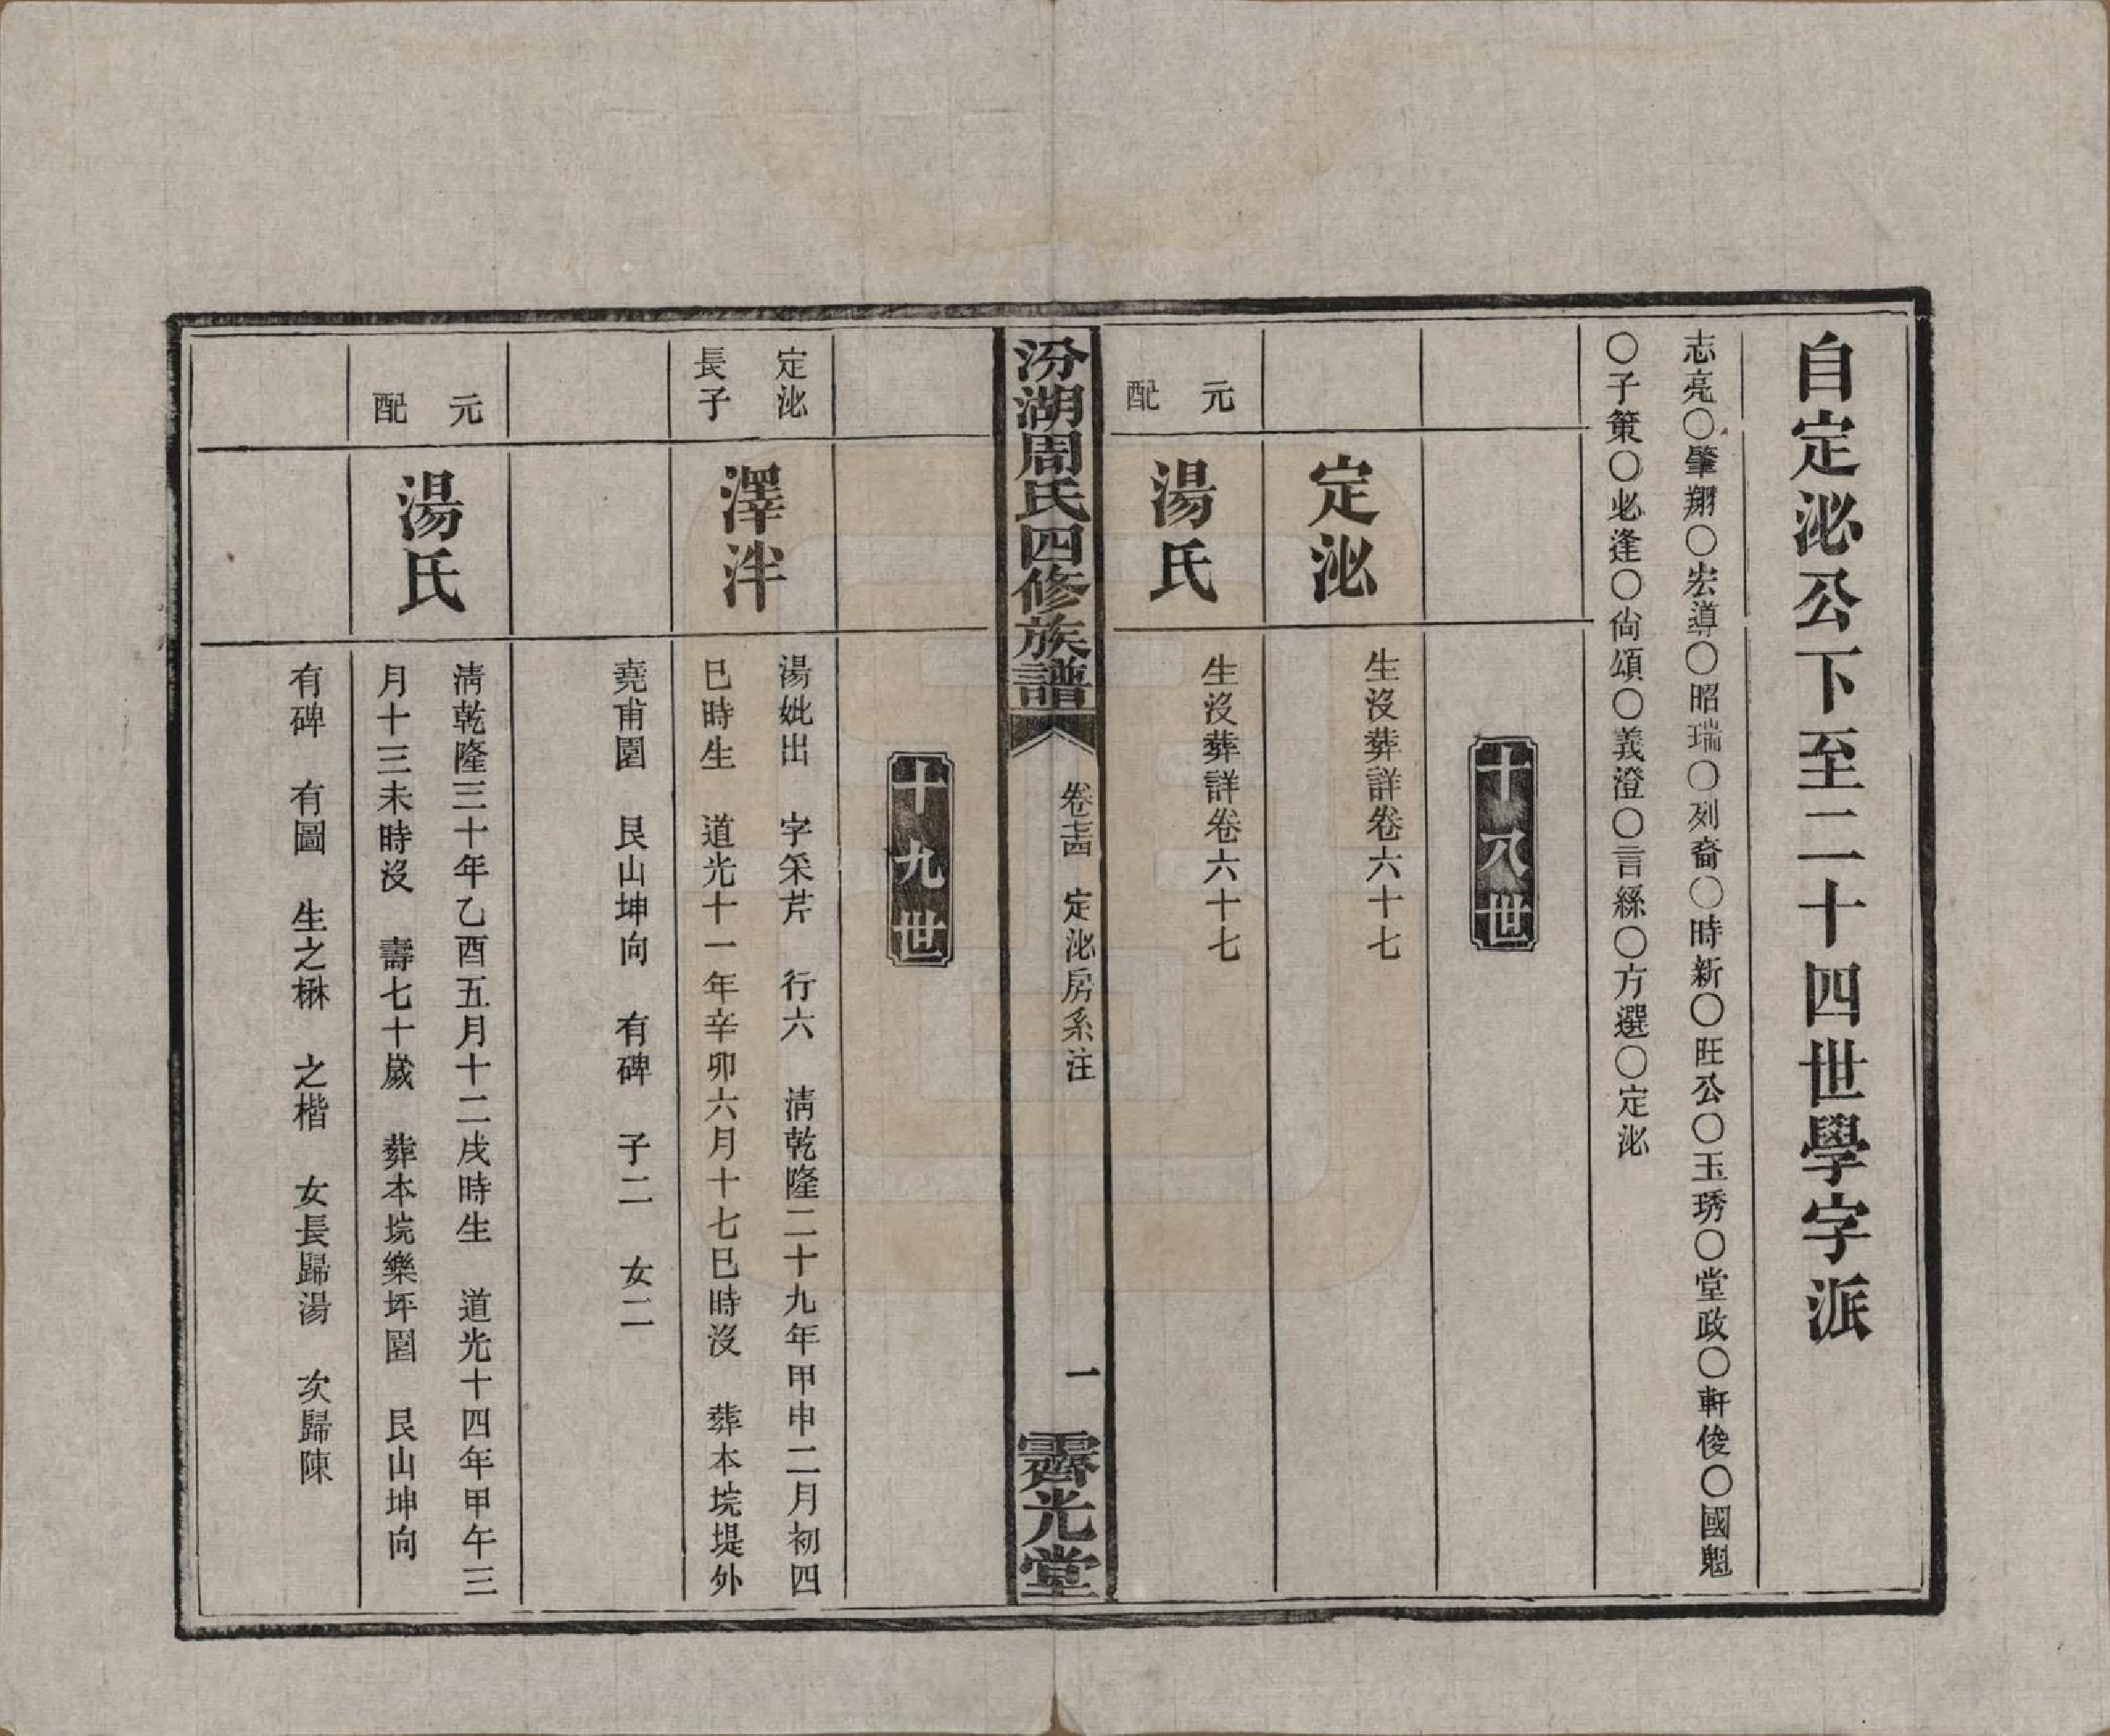 自定泌公下至二十四世學字派
志亮〇肇翔〇宏導〇昭瑞〇列裔〇時新〇旺公〇玉琇〇堂政〇軒俊〇國魁
〇子策〇必逢〇尙頌〇義澄〇言綠〇方選〇定泌
十八世
定泌
生沒葬詳卷六十七
元配
湯氏
生沒葬詳卷六十七
汾湖周氏四修族譜
卷七十四 定泌房系注
一
霽光堂
十九世
定泌
長子
澤泮
湯妣出 字采芹 行六 淸乾隆二十九年甲申二月初四
巳時生 道光十一年辛卯六月十七巳時沒 葬本垸堤外
堯甫園 艮山坤向 有碑 子二 女二
元配
湯氏
淸乾隆三十年乙酉五月十二戌時生 道光十四年甲午三
月十三未時沒 壽七十歲 葬本垸樂坪園 艮山坤向
有碑 有圖 生之楙 之楷 女長歸湯 次歸陳